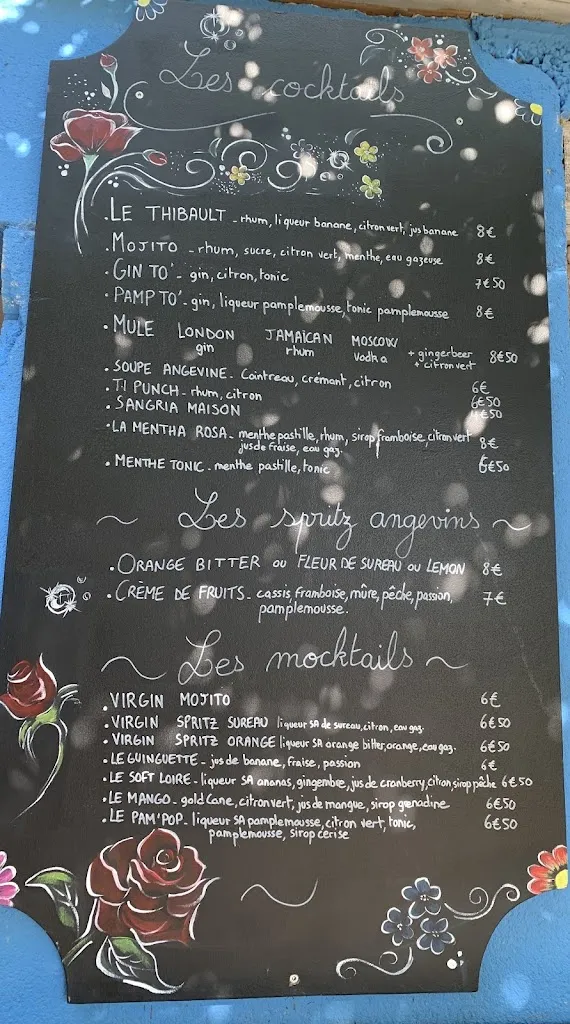 Les cocktails
. LE THIBAULT - rhum, liqueur banane, citron vert, jus banane 8€
. MOJITO - rhum, sucre, citron vert, menthe, eau gazeuse 8€
. GIN TO' - gin, citron, tonic 7€50
. PAMP TO' - gin, liqueur pamplemousse, tonic pamplemousse 8€
. MULE LONDON JAMAÏCAN MOSCOW
gin rhum vodka + gingerbeer 8€50
+ citron vert
. SOUPE ANGEVINE - Cointreau, crémant, citron 6€
. TI PUNCH - rhum, citron 6€50
. SANGRIA MAISON 4€50
. LA MENTHA ROSA - menthe pastille, rhum, sirop framboise, citron vert 8€
jus de fraise, eau gaz.
. MENTHE TONIC - menthe pastille, tonic 6€50
~ Les spritz angevins ~
. ORANGE BITTER ou FLEUR DE SUREAU ou LEMON 8€
. CRÈME DE FRUITS - cassis, framboise, mûre, pêche, passion, 7€
pamplemousse.
~ Les mocktails ~
. VIRGIN MOJITO 6€
. VIRGIN SPRITZ SUREAU liqueur SA de sureau, citron, eau gaz. 6€50
. VIRGIN SPRITZ ORANGE liqueur SA orange bitter, orange, eau gaz. 6€50
. LE GUINGUETTE - jus de banane, fraise, passion 6€
. LE SOFT LOIRE - liqueur SA ananas, gingembre, jus de cranberry, citron, sirop pêche 6€50
. LE MANGO - gold Cane, citron vert, jus de mangue, sirop grenadine 6€50
. LE PAM'POP - liqueur SA pamplemousse, citron vert, tonic, 6€50
pamplemousse, sirop cerise